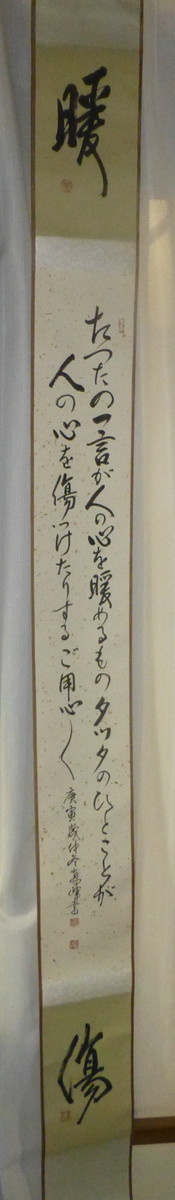 暖
たつたの一言が人の心を暖めるもの タツタのひとことが
人の心を傷つけたりする ご用心〱
庚寅歳仲冬
書
傷